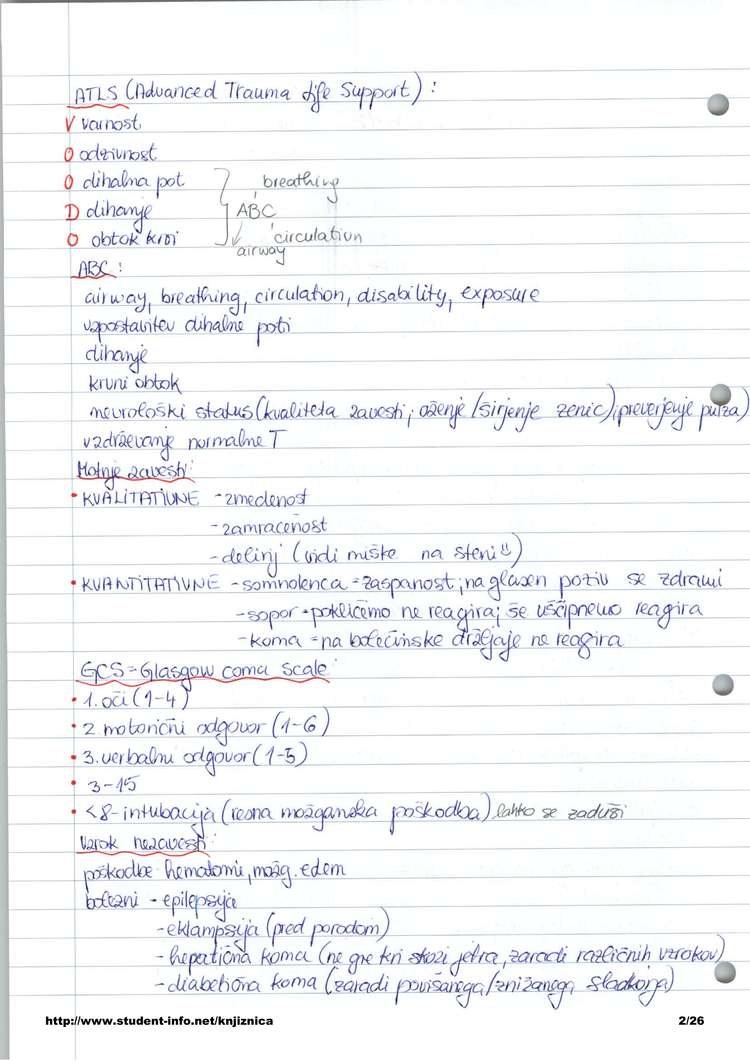 ATLS (Advanced Trauma Life Support) :
V varnost
O odzivnost
O dihalna pot
breathing
D dihanje
ABC
O obtok krvi
circulation
airway
ABC :
airway, breathing, circulation, disability, exposure
vzpostavitev dihalne poti
dihanje
krvni obtok
nevrološki status (kvaliteta zavesti; oženje / širjenje zenic), preverjenje pulza)
vzdrževanje normalne T
Motnje zavesti:
• KVALITATIVNE - zmedenost
- zamračenost
- delirij (vidi miške na steni)
• KVANTITATIVNE - somnolenca = zaspanost; na glasen poziv se zdrami
- sopor - pokličemo ne reagira; še uščipnemo reagira
- koma = na bolečinske dražljaje ne reagira
GCS = Glasgow coma scale
• 1. oči (1-4)
• 2. motorični odgovor (1-6)
• 3. verbalni odgovor (1-5)
• 3-15
• <8 - intubacija (resna možganska poškodba) lahko se zaduši
Vzrok nezavesti:
poškodbe hematomi, možg. edem
bolezni - epilepsija
- eklampsija (pred porodom)
- hepatična koma (ne gre kri skozi jetra, zaradi različnih vzrokov)
- diabetična koma (zaradi povišanega/znižanega sladkorja)
http://www.student-info.net/knjiznica
2/26